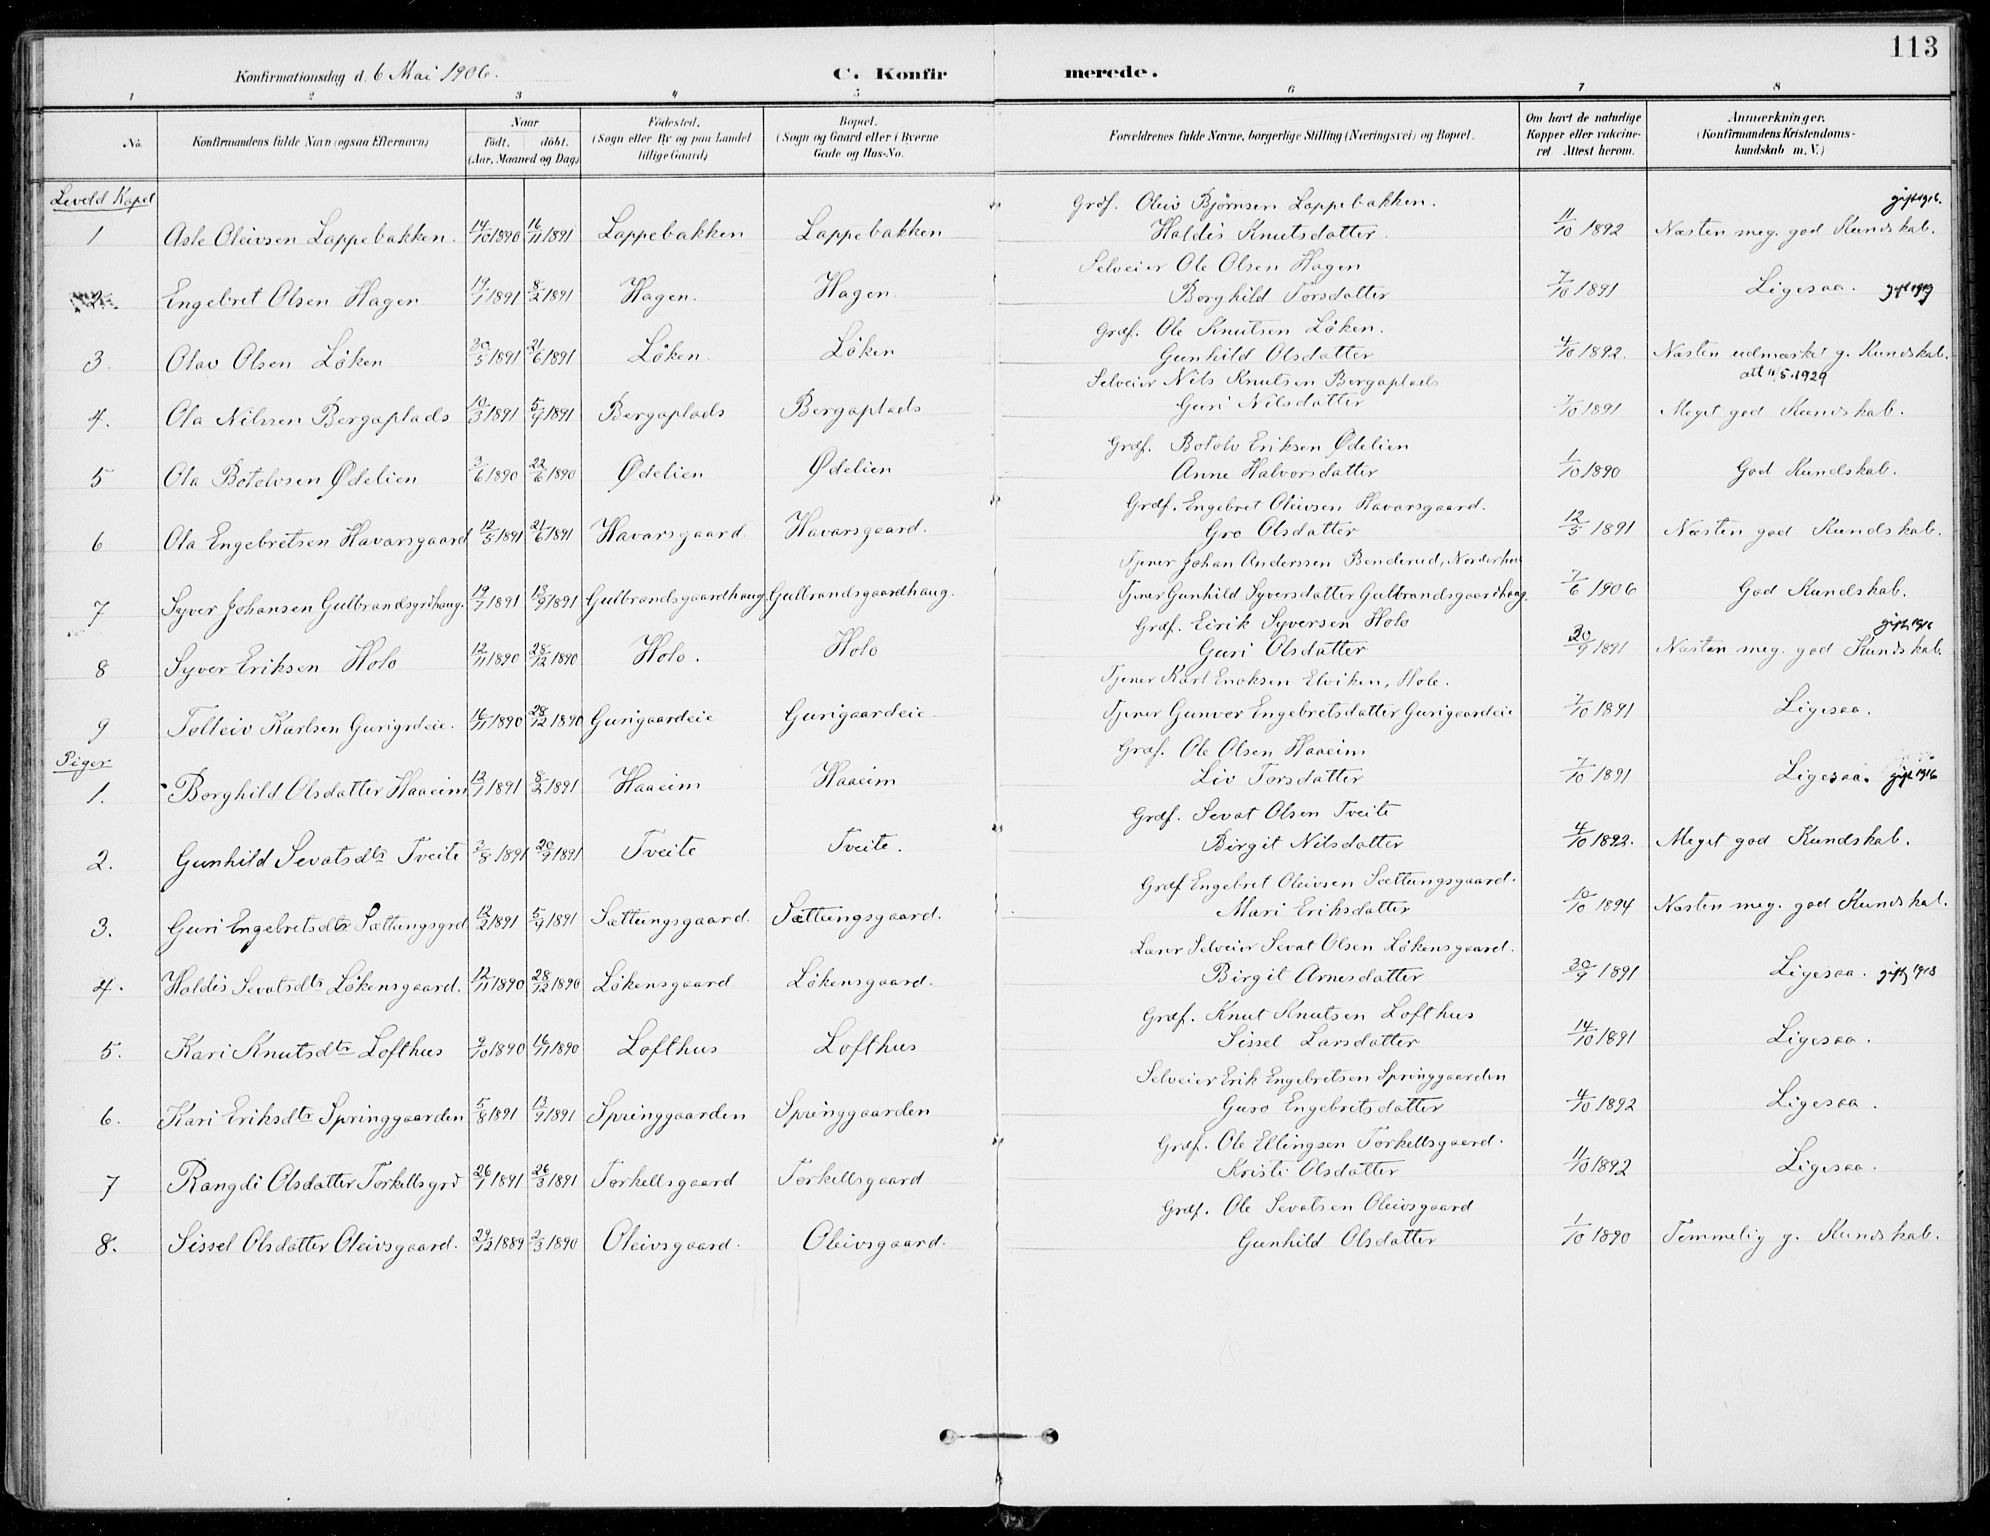 113
Konfirmationsdag d. 6 Mai 1906. C. Konfirmerede.
1 2 3 4 5 6 7 8
No. Konfirmandens fulde Navn (ogsaa Efternavn) Naar født. døbt. (Aar, Maaned og Dag) Fødested. (Sogn eller By og paa Landet tillige Gaard) Bopæl. (Sogn og Gaard eller i Byerne Gade og Hus-No. Forældrenes fulde Navne, borgerlige Stilling (Næringsvei) og Bopæl. Om havt de naturlige Kopper eller vakcineret Attest herom. Anmærkninger. (Konfirmandens Kristendomskundskab m. V.)
Leveld Kapel
Grdf. Oleiv Bjørnsen Lappebakken. gift 1916.
1 Asle Oleivsen Lappebakken. 14/10 1890 16/11 1891 Lappebakken Lappebakken Haldis Knutsdatter. 11/10 1892 Næsten meg. god Kundskab.
Selveier Ole Olsen Hagen
2. Engebret Olsen Hagen 17/1 1891 8/2 1891 Hagen. Hagen. Borghild Torsdatter 7/10 1891 Ligesaa. gift 1919
Grdf. Ole Knutsen Løken.
3. Olav Olsen Løken 20/5 1891 21/6 1891 Løken. Løken Gunhild Olsdatter 4/10 1892. Næsten udmærket g. Kundskab.
Selveier Nils Knutsen Bergaplads att 11/5.1929
4. Ola Nilssen Bergaplads 10/3 1891 5/4 1891 Bergaplads Bergaplads Guri Nilsdatter 7/10 1891 Meget god Kundskab.
Grdf. Botolv Eriksen Ødelien
5 Ola Botolvsen Ødelien 3/6 1890 22/6 1890 Ødelien Ødelien Anne Halvorsdatter 1/10 1890 God Kundskab.
Grdf. Engebret Oleivsen Havarsgaard.
6 Ola Engebretsen Havarsgaard 12/5 1891 21/6 1891 Havarsgaard. Havarsgaard. Gro Olsdatter 12/5 1891 Næsten god Kundskab.
Tjener Johan Anderssen Benderud, Norderhov
7 Syver Johansen Gulbrandsgrdhaug. 19/7 1891 13/9 1891 Gulbrandsgaardhaug. Gulbrandsgaardhaug. Tjener Gunhild Syversdatter Gulbrandsgaardhaug. 7/6 1906 God Kundskab.
Grdf. Eirik Syversen Holo gift 1916
8 Syver Eriksen Holo 12/11 1890 28/12 1890 Holo. Holo Guri Olsdatter 30/9 1891 Næsten meg. god Kundskab
Tjener Karl Enoksen Elviken, Hole.
9 Tolleiv Karlsen Gurigrdeie. 16/11 1890 28/12 1890 Gurigaardeie Gurigaardeie. Tjener Gunvor Engebretsdatter Gurigaardeie 7/10 1891 Ligesaa.
Piger
Grdf. Ole Olsen Haaeim
1. Borghild Olsdatter Haaeim 12/1 1891 8/2 1891 Haaeim Haaeim Liv Torsdatter 7/10 1891 Ligesaa. gift 1916
Grdf. Sevat Olsen Tveite
2. Gunhild Sevatsdtr Tveite 2/8 1891 20/9 1891 Tveite Tveite. Birgit Nilsdatter 4/10 1892. Meget god Kundskab.
Grdf Engebret Oleivsen Sættungsgaard.
3. Guri Engebretsdtr Sættungsgrd 12/2 1891 5/4 1891 Sættungsgaard. Sættungsgaard. Mari Eriksdatter 10/10 1894 Næsten meg. god Kundskab.
Lærer Selveier Sevat Olsen Løkensgaard.
4. Haldis Sevatsdtr Løkensgaard. 12/11 1890 28/12 1890 Løkensgaard Løkensgaard. Birgit Arnesdatter 30/9 1891 Ligesaa. gift 1918
Grdf. Knut Knutsen Lofthus
5. Kari Knutsdtr Lofthus 9/10 1890 16/11 1890 Lofthus Lofthus Sissel Larsdatter 14/10 1891 Ligesaa.
Selveier Erik Engebretsen Springgaarden
6. Kari Eriksdtr Springgaarden 5/8 1891 13/9 1891 Springgaarden Springgaarden Guro Engebretsdatter 4/10 1892 Ligesaa.
Grdf. Ole Ellingsen Torkellsgaard.
7 Rangdi Olsdatter Torkellsgrd 26/1 1891 26/3 1891 Torkellsgaard Torkellsgaard Kristi Olsdatter 11/10 1892 Ligesaa.
Grdf. Ole Sevatsen Oleivsgaard
8. Sissel Olsdatter Oleivsgaard. 29/12 1889 2/3 1890 Oleivsgaard. Oleivsgaard. Gunhild Olsdatter 1/10 1890 Temmelig g. Kundskab.